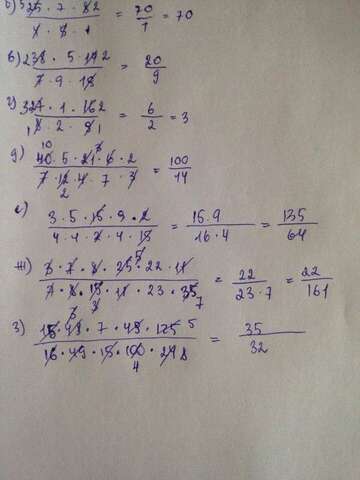 б) 5 35 · 7 · 82 / 1 · 8 · 1 = 70/1 = 70
в) 238 · 5 · 142 / 7 · 9 · 18 = 20/9
г) 327 · 1 · 162 / 1 8 · 2 · 81 = 6/2 = 3
д) 10 40 · 5 · 21 3 · 6 · 2 / 7 · 12 2 · 4 · 7 · 3 = 100/14
е) 3 · 5 · 15 · 9 · 2 / 4 · 4 · 2 · 4 · 18 = 15 · 9 / 16 · 4 = 135/64
ж) 3 · 7 · 8 · 25 5 · 22 · 11 / 7 · 8 · 15 3 · 11 · 23 · 35 7 = 22 / 23 · 7 = 22/161
з) 15 · 49 · 7 · 48 · 125 5 / 16 · 49 · 15 · 100 4 · 24 8 = 35/32